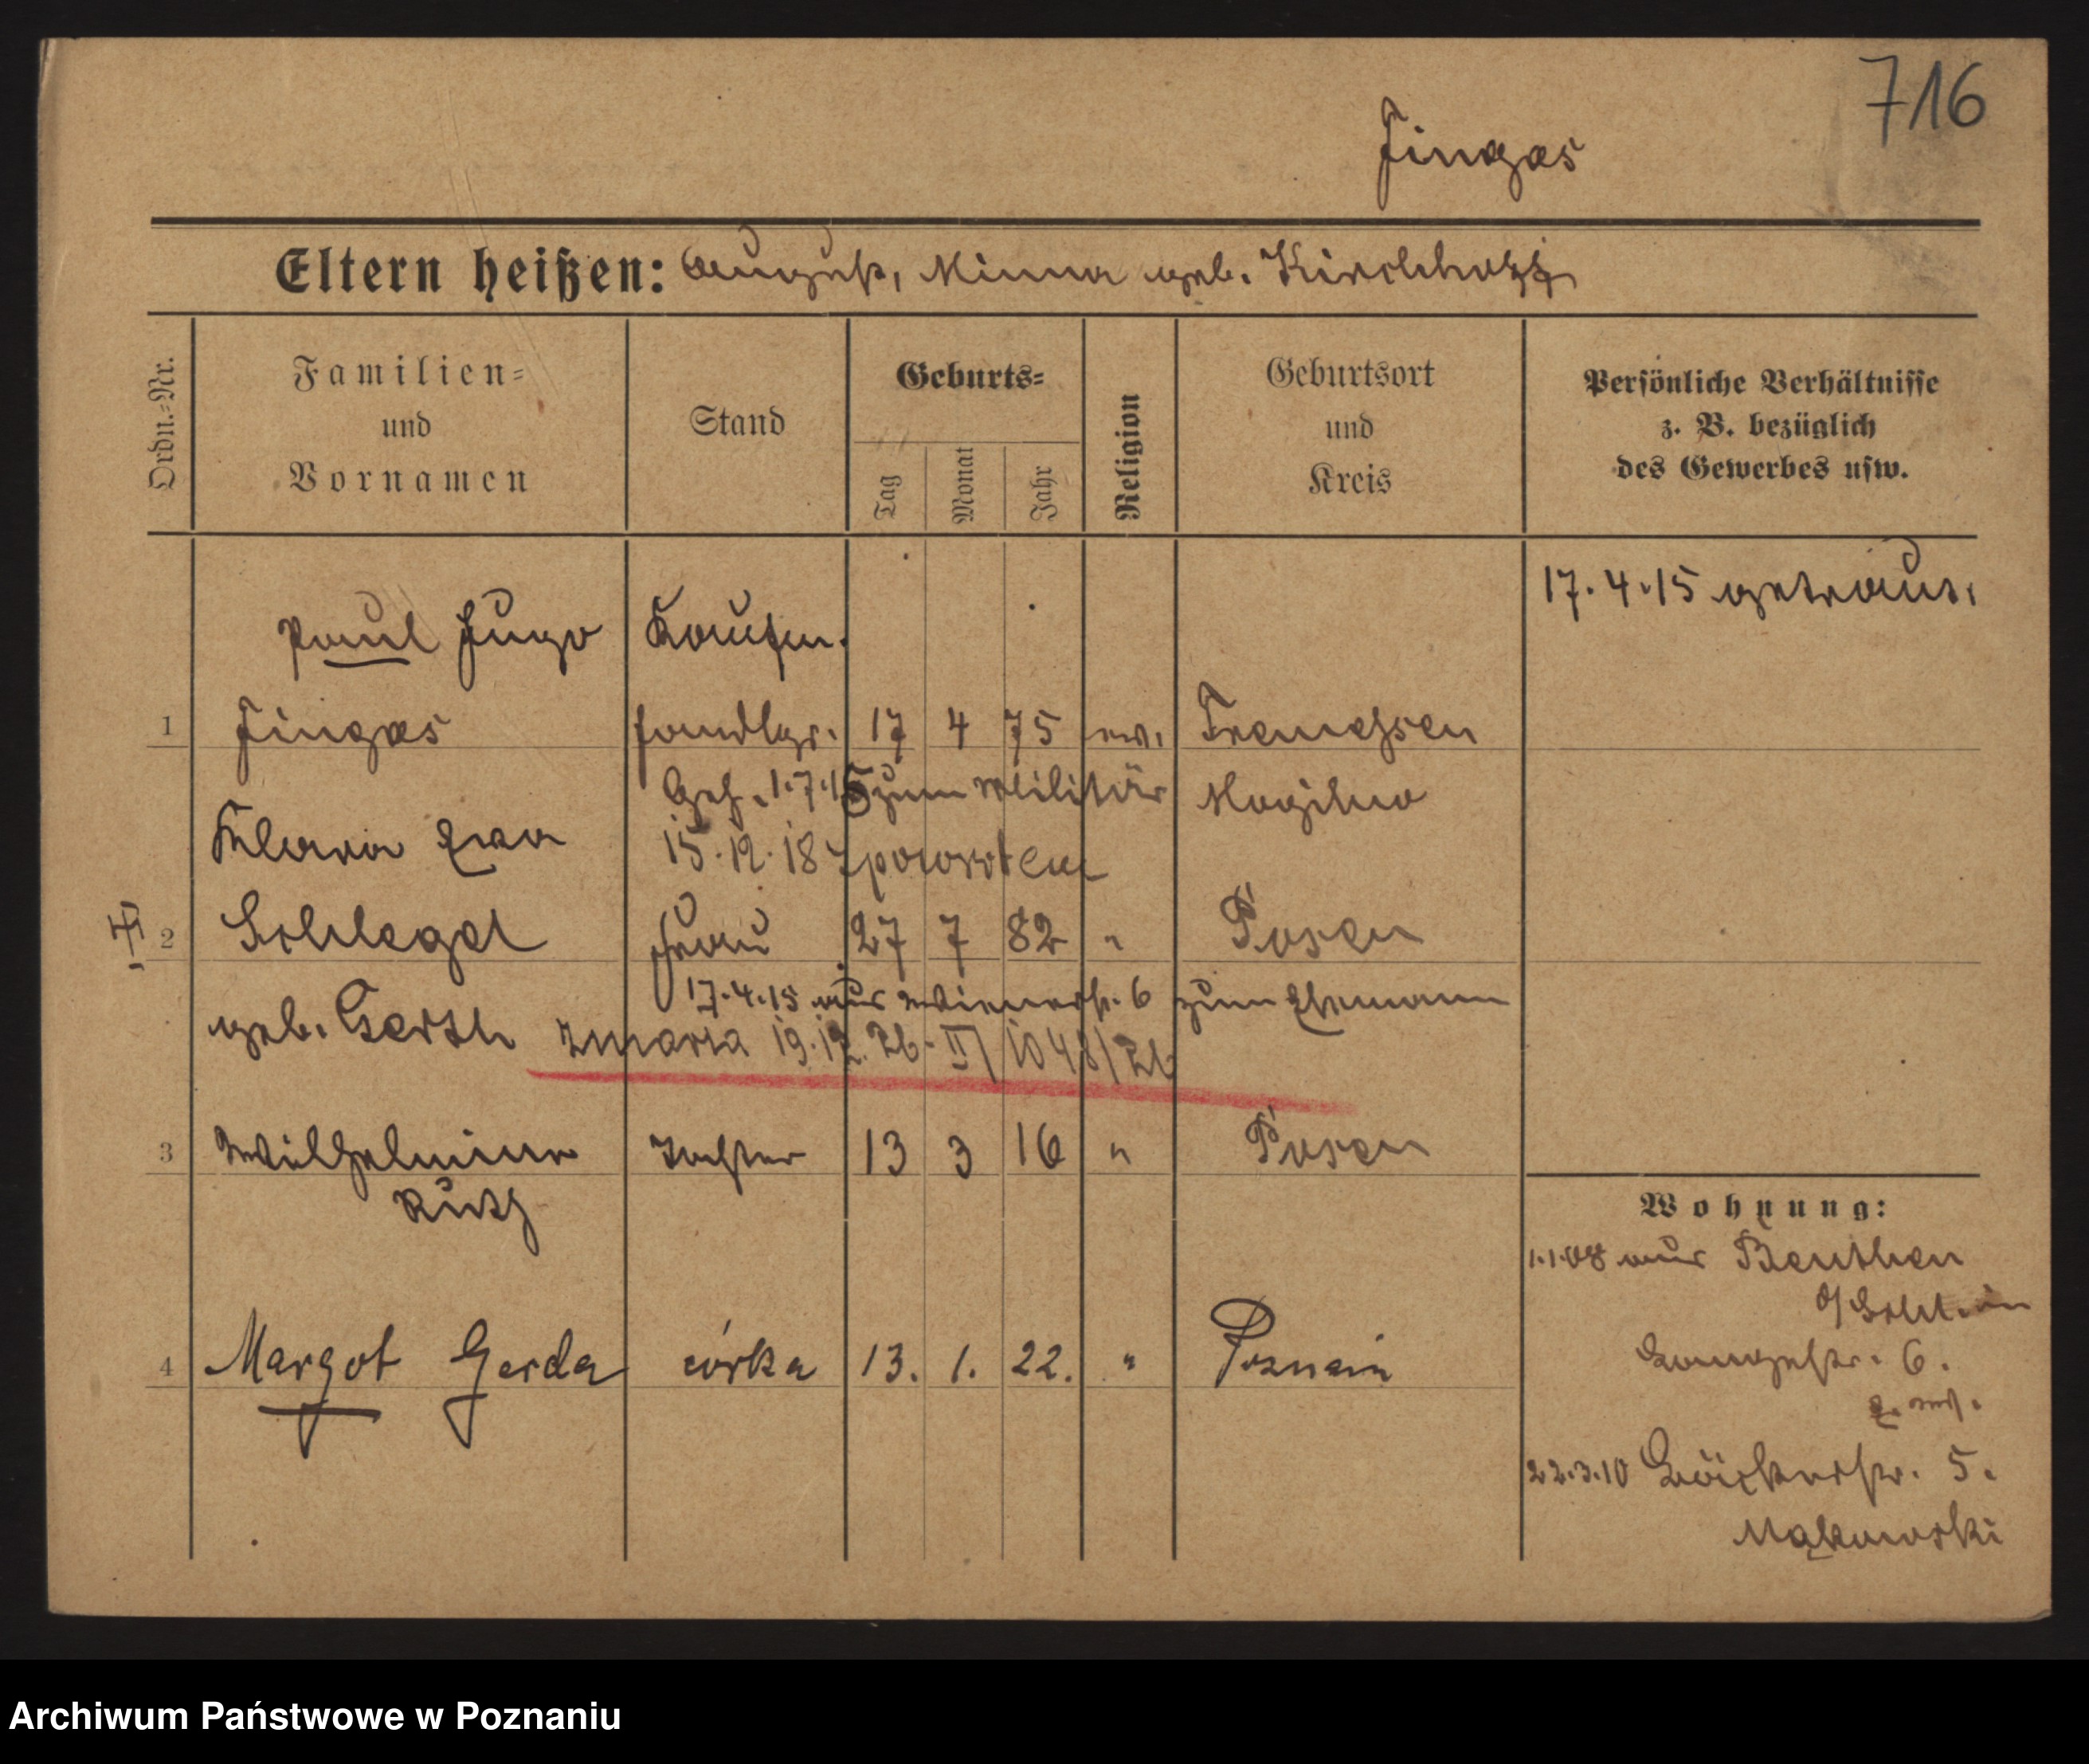 716
Fingas
Eltern heißen: August, Minna geb. Kirchhoff
Ordn.-Nr.
Familien-
und
Vornamen
Stand
Geburts-
Tag
Monat
Jahr
Religion
Geburtsort
und
Kreis
Persönliche Verhältnisse
z. B. bezüglich
des Gewerbes usw.
17.4.15 getraut.
Paul Hugo Kaufm.
1 Fingas Handlgs. 17 4 75 ev. Tremessen
Geh. 1.7.15 zum Militär Mogilno
Klara Eva 15.12.18 z powrotem
2 Schlegel Frau 27 7 82 " Posen
17.4.15 aus Wienerstr. 6 zum Ehemann
geb. Gerth zmarła 19.12.26. III 1048/26
3 Wilhelmine Tochter 13 3 16 " Posen
Ruth
Wohnung:
1.1.08 aus Beuthen
Langestr. 6.
4 Margot Gerda córka 13. 1. 22. " Poznań
22.3.10 5.
Makowski
Archiwum Państwowe w Poznaniu